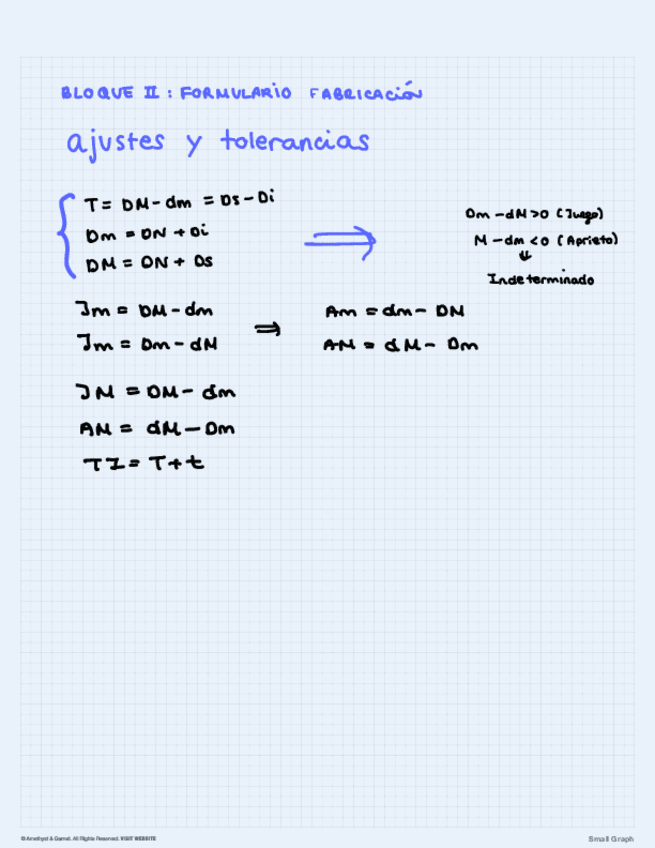 BLOQUE II : FORMULARIO FABRICACIÓN
ajustes y tolerancias
T = DM - dm = Ds - Di
Dm = DN + Di
DM = DN + Ds
⇒
Dm - dM > 0 (Juego)
M - dm < 0 (Aprieto)
⇓
Indeterminado
Jm = DM - dm
Jm = Dm - dM
⇒
Am = dm - DM
AM = dM - Dm
JM = DM - dm
AM = dM - Dm
TI = T + t
© Amethyst & Garnet. All Rights Reserved. VISIT WEBSITE
Small Graph